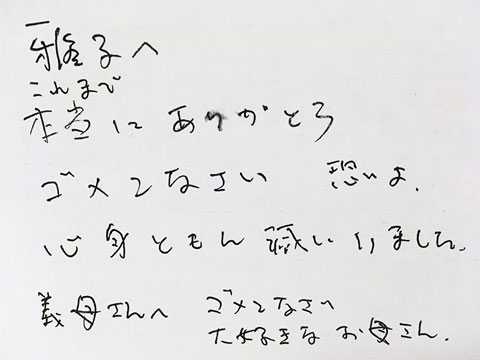 雅子へ
これまで
本当にありがとう
ゴメンなさい 恐いよ、
心身ともに いました。
義母さんへ ゴメンなさい
大好きなお母さん、